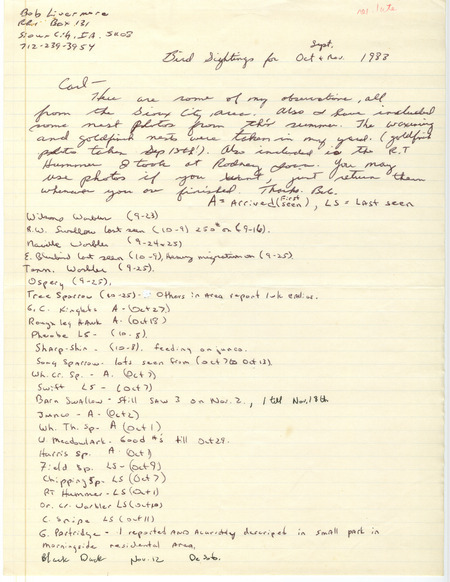 Bob Livermore
RR1 Box 131
Sioux City, IA. 51108
712-239-3954
no late
Bird Sightings for Sept. Oct & Nov. 1983
Carl-
These are some of my observations, all
from the Sioux City area. Also I have included
some nest photos from this summer. The waxwing
and goldfinch nests were taken in my yard. (goldfinch
photo taken Sep 13th!) Also included is the R.T.
Hummer I took at Rodney Iowa. You may
use photos if you want, just return them
whenever you are finished. Thanks. Bob.
A = Arrived (First seen), LS = Last seen
Wilsons Warbler (9-23)
R.W. Swallow last seen (10-9) 250 on (9-16).
Nasville Warbler (9-24+25)
E. Bluebird last seen (10-9), Heavy migration on (9-25).
Tenn. Warbler (9-25).
Ospery (9-25).
Tree Sparrow (10-25)- Others in Area report 1wk earlier.
G. C. Kinglets A - (Oct 27)
Rough leg Hawk A - (Oct 13)
Pheobe LS - (10-8).
Sharp-shin - (10-8). feeding on junco.
Song Sparrow - lots seen from (oct 7 to Oct 13).
Wh. Cr. Sp. - A. (Oct 7)
Swift LS - (Oct 7)
Barn Swallow - Still saw 3 on Nov. 2., 1 till Nov. 18th
Junco - A - (Oct 2)
Wh. Th. Sp. A (Oct 1)
W. Meadowlark - Good #'s till Oct 29.
Harris Sp. A (Oct 7)
Field Sp. LS - (Oct 9)
Chipping Sp. LS (Oct 7)
RT Hummer - LS (Oct 1)
Or. Cr. Warbler LS (Oct 10)
C. Snipe LS (Oct 11)
G. Partridge - 1 reported AND Accuratly descriped in small park in
morningside residental Area,
Black Duck Nov. 12 Dec 26.